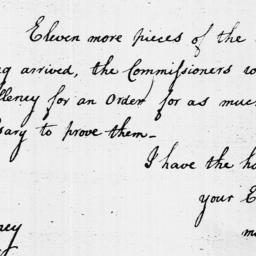 Eleven more pieces of the
arrived, the Commissioners
for an Order) for as much
to prove them_
I have the
your